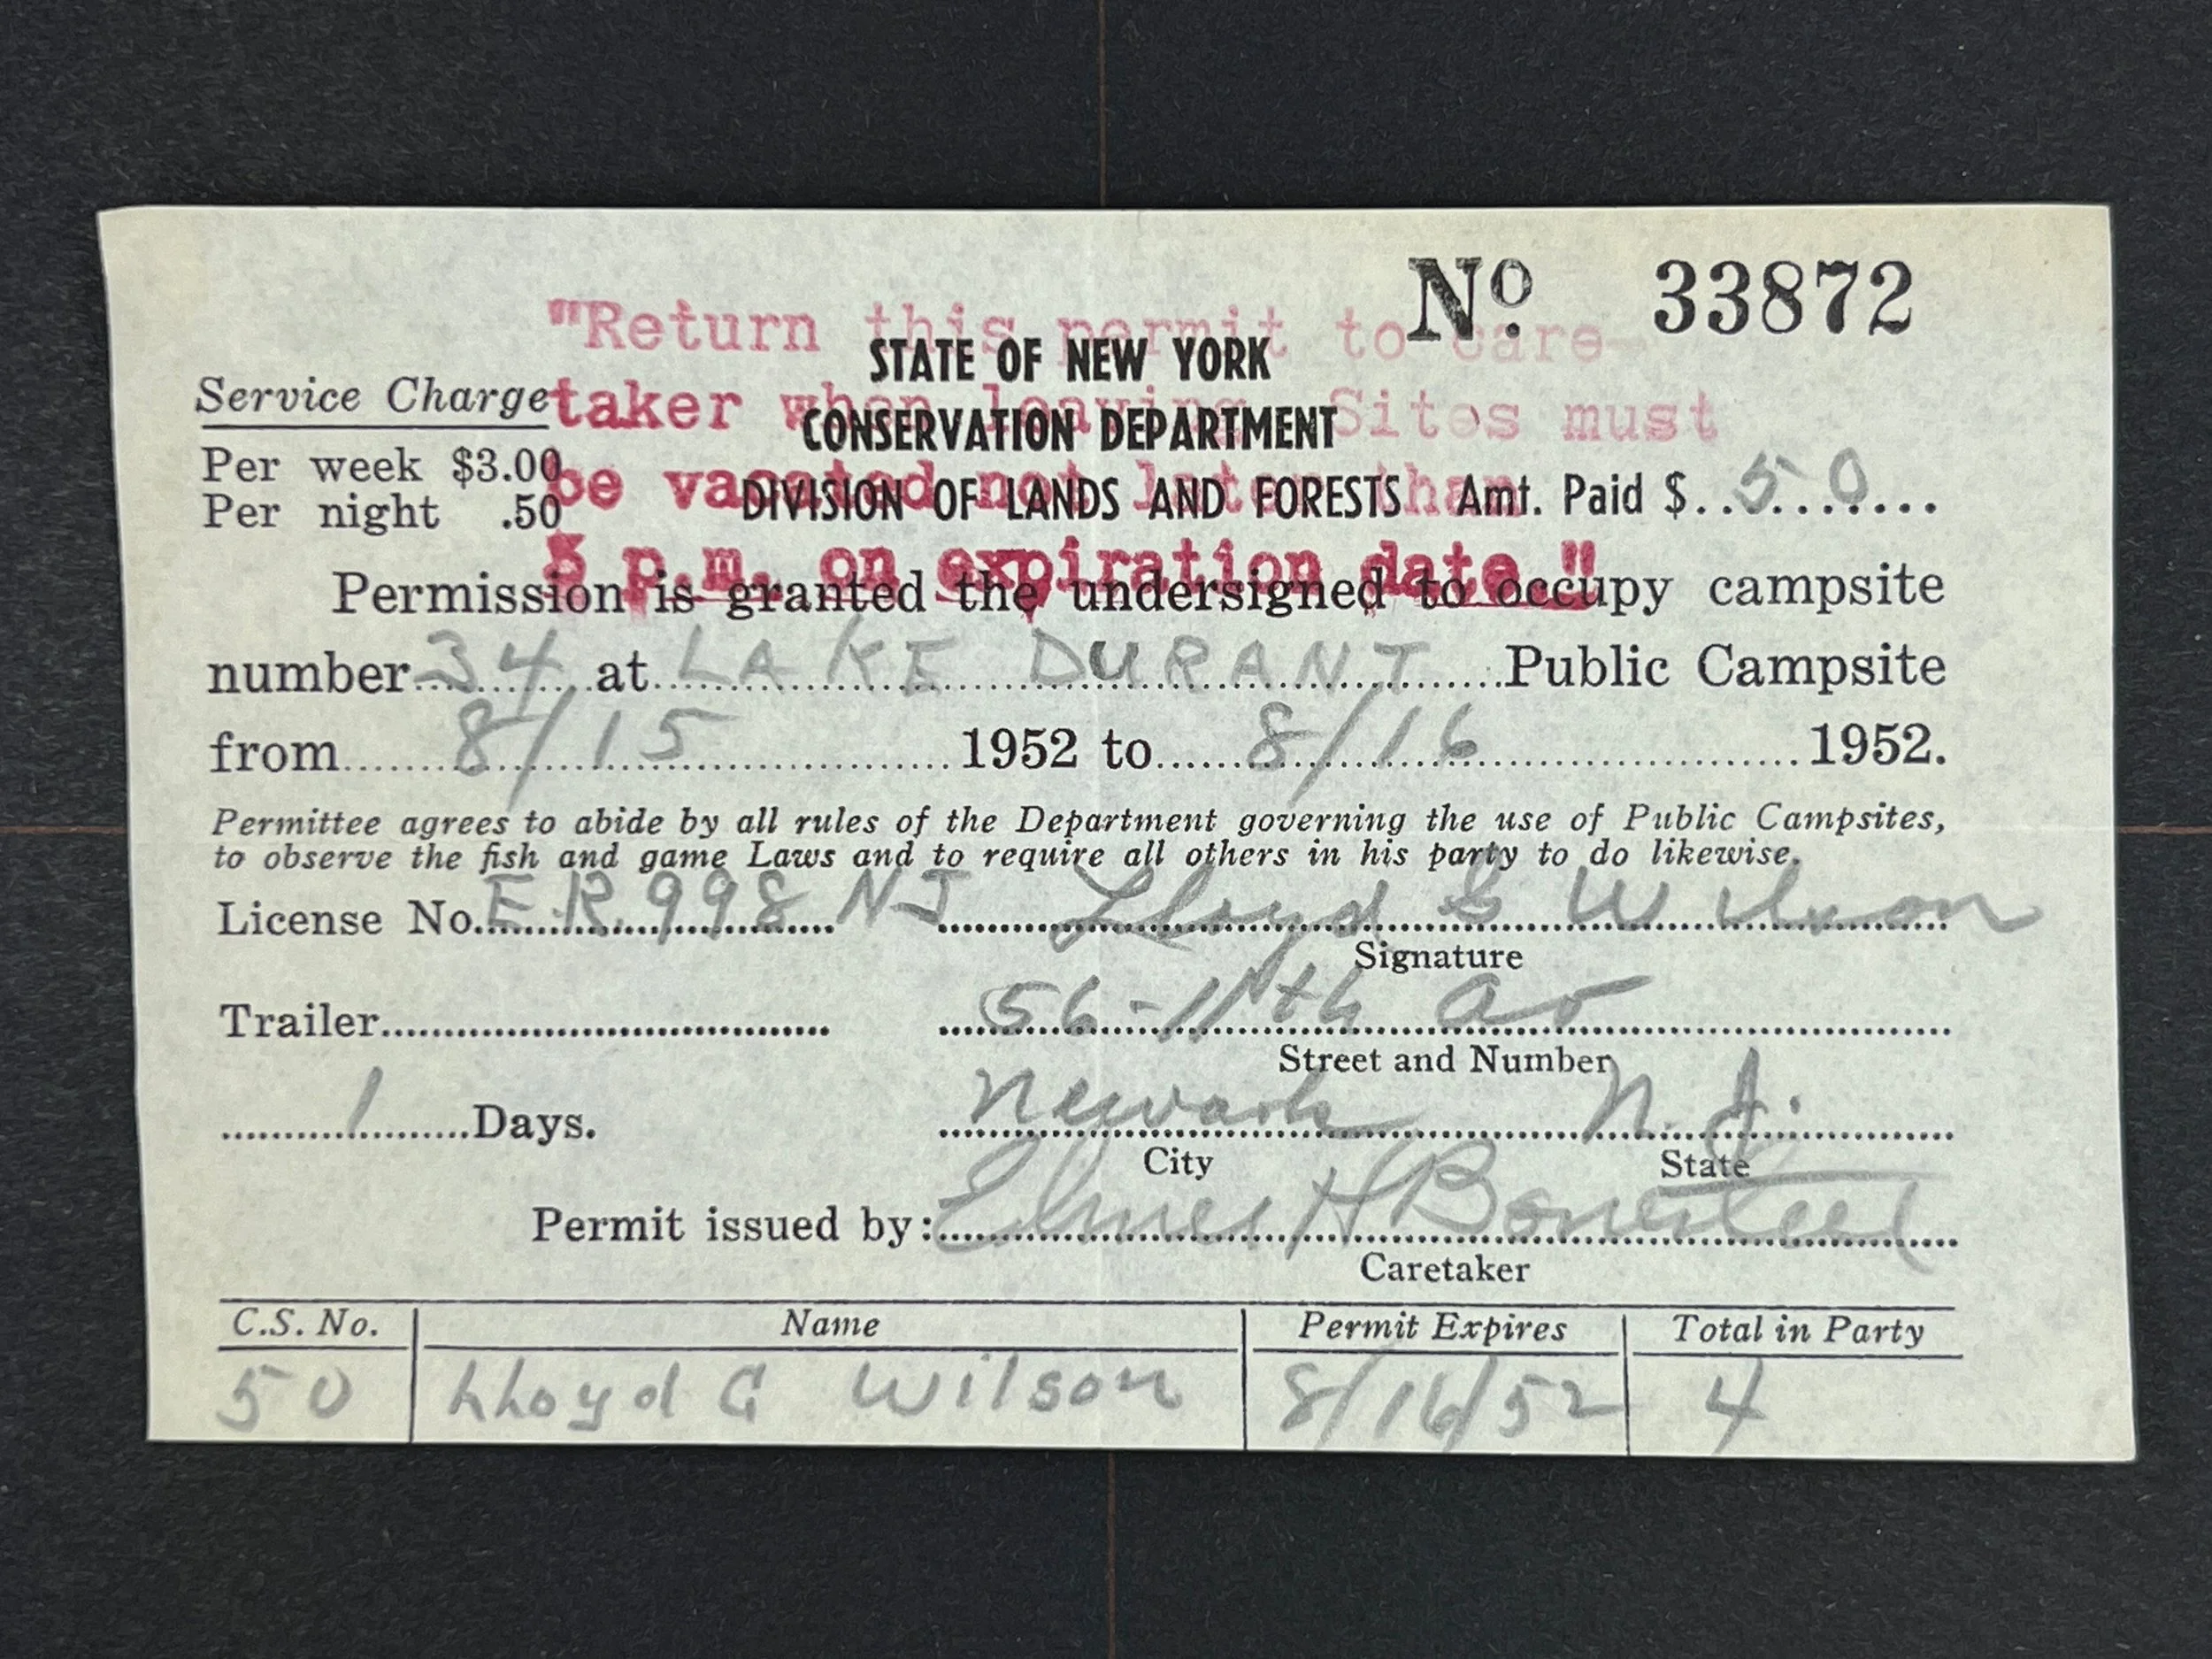 No. 33872
"Return this permit to care-
taker when leaving. Sites must
be vacated not later than
5 p.m. on expiration date."
STATE OF NEW YORK
CONSERVATION DEPARTMENT
DIVISION OF LANDS AND FORESTS
Service Charge
Per week $3.00
Per night .50
Amt. Paid $..50........
Permission is granted the undersigned to occupy campsite
number 34 at LAKE DURANT Public Campsite
from 8/15 1952 to 8/16 1952.
Permittee agrees to abide by all rules of the Department governing the use of Public Campsites,
to observe the fish and game Laws and to require all others in his party to do likewise.
License No. E.R. 998 NJ Lloyd G Wilson
Signature
Trailer 56-11th Av
Street and Number
1 Days. Newark N.J.
City State
Permit issued by: Elmer H Bonesteel
Caretaker
C.S. No. Name Permit Expires Total in Party
50 Lloyd G Wilson 8/16/52 4